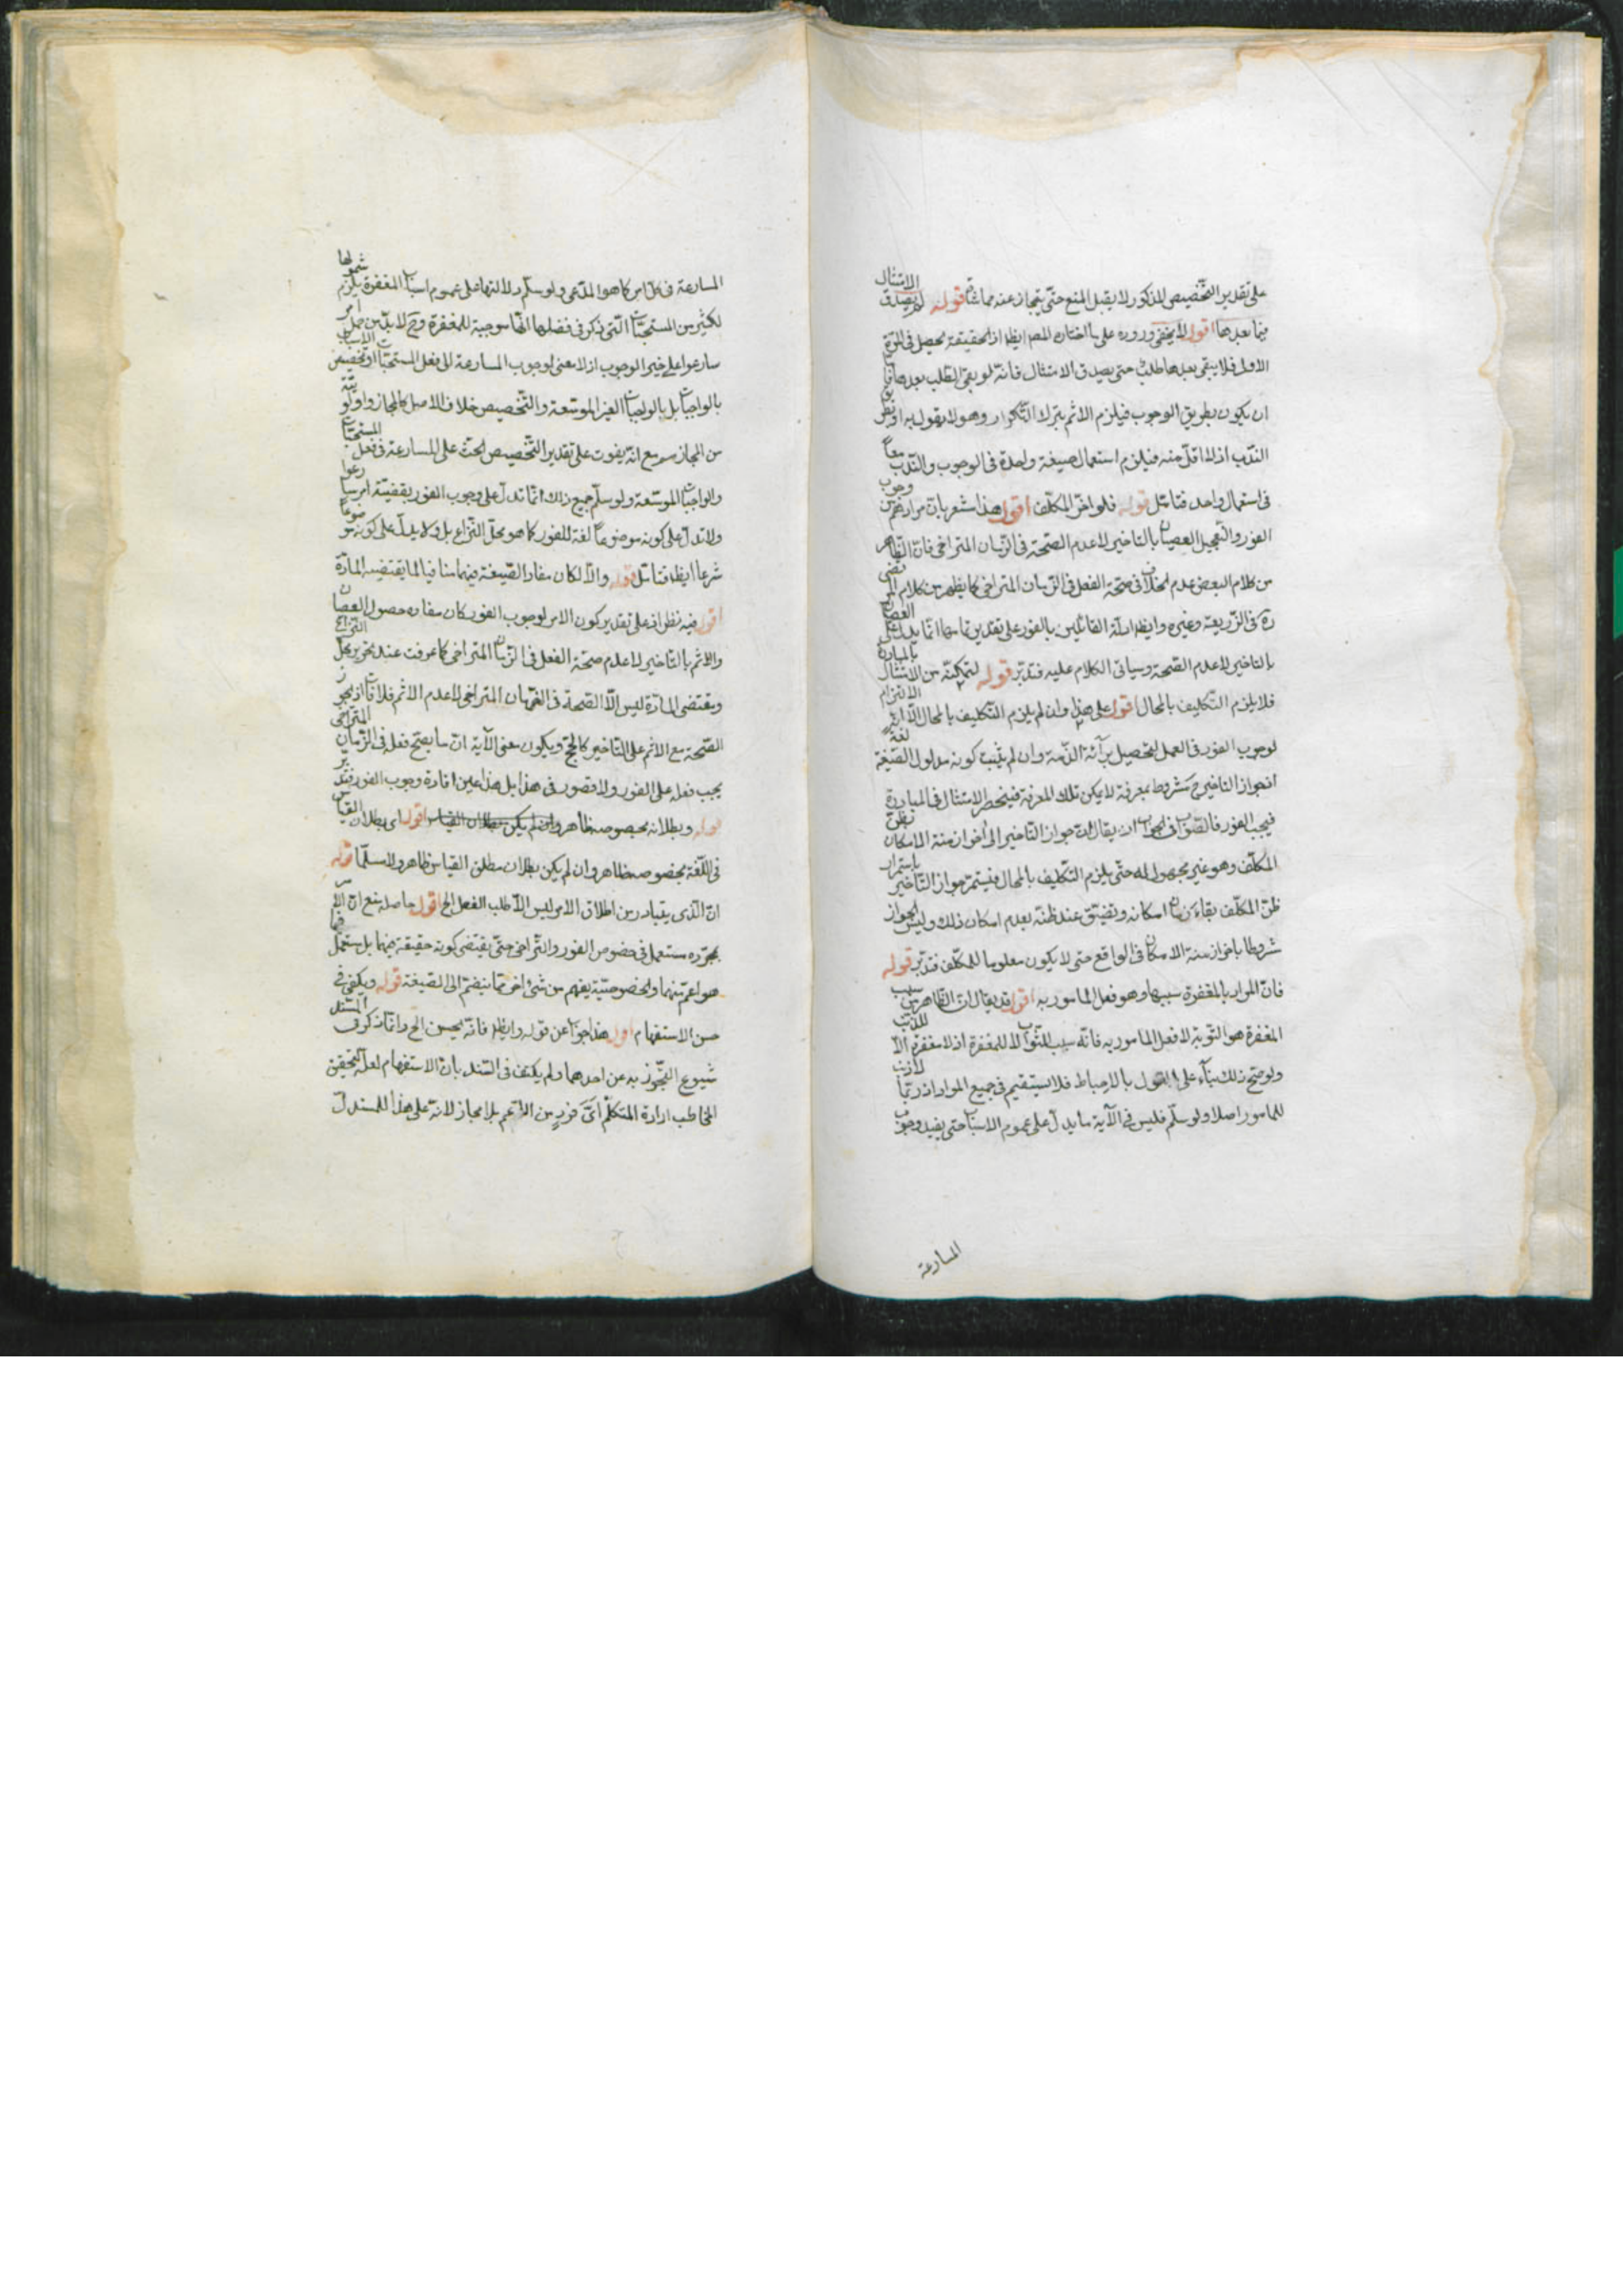 على تقدير التخصيص المذكور لا يقبل المنع حتى يتجاز عنه مماشاة قوله لم يصدق الامتثال
فيما بعدها اقول لا يخفى وروده على ما اختاره المصـ ايضا اذ الحقيقة تحصل في المرة
الاولى فلا يبقى بعدها طلب حتى يصدق الامتثال فانه لو بقى الطلب بعدها فاما
ان يكون بطريق الوجوب فيلزم الاثم بترك التكرار وهو لا يقول به او بطريق
الندب اذ لا اقل منه فيلزم استعمال صيغة واحدة في الوجوب والندب معاً
في استعمال واحد فتامل قوله فلو اخر المكلف اقول هذا مشعر بان مرادهم من وجوب
الفور والتعجيل العصيان بالتاخير لا عدم الصحة في الزمان المتراخى فان الظاهر
من كلام البعض عدم الخلاف في صحة الفعل في الزمان المتراخى كما يظهر من كلام المرتضى
ره في الذريعة وغيره وايضا ادلة القائلين بالفور على تقدير تمامها انما يدل على العصيان
بالتاخير لا عدم الصحة وسياتى الكلام عليه فتدبر قوله لتمكنه من الامتثال بالمبادرة
فلا يلزم التكليف بالمحال اقول على هذا وان لم يلزم التكليف بالمحال الا انه التزام
لوجوب الفور في العمل لتحصيل برآءة الذمة وان لم يثبت كونه مدلول الصيغة لغة
اذ جواز التاخير ح مشروط بمعرفة لا يمكن تلك المعرفة فينحصر الامتثال في المبادرة
فيجب الفور فالصواب في الجواب ان يقال ان جواز التاخير الى اخر ازمنة الامكان بظن
المكلف وهو غير مجهول له حتى يلزم التكليف بالمحال فيستمر جواز التاخير باستمرار
ظن المكلف بقاء زمان امكانه ويتضيق عند ظنه بعدم امكان ذلك وليس الجواز
مشروطا باخر ازمنة الامكان في الواقع حتى لا يكون معلوما للمكلف فتدبر قوله
فان المراد بالمغفرة سببها وهو فعل المامور به اقول قد يقال ان الظاهر من سبب
المغفرة هو التوبة لا فعل المامور به فانه سبب للثواب لا للمغفرة اذ لا مغفرة الا للذنب
ولو صح ذلك بناء على القول بالاحباط فلا يستقيم في جميع الموارد اذ ربما لا ذنب
للمامور اصلا ولو سلم فليس في الآية ما يدل على عموم الاسباب حتى يفيد وجوب
المسارعة
المسارعة في كل امر كما هو المدعى ولو سلم دلالتها على عموم اسباب المغفرة يلزم شمولها
لكثير من المستحبات التى ذكر في فضلها انها موجبة للمغفرة وح لا بد من حمل امر
سارعوا على غير الوجوب اذ لا معنى لوجوب المسارعة الى فعل المستحبات او تخصيص الاسباب
بالواجبات بل بالواجبات الغير الموسعة والتخصيص خلاف الاصل كالمجاز واولويته
من المجاز مم مع انه يفوت على تقدير التخصيص الحث على المسارعة في فعل المستحبات
والواجبات الموسعة ولو سلم جميع ذلك انما تدل على وجوب الفور بقضية امر سارعوا
ولا تدل على كونه موضوعاً لغة للفور كما هو محل النزاع بل ولا يدل على كونه موضوعاً
شرعا ايضا فتامل قوله والا لكان مفاد الصيغة فيهما منافيا لما يقتضيه المادة
اقول فيه نظر اذ على تقدير كون الامر لوجوب الفور كان مفاده حصول العصيان
والاثم بالتاخير لا عدم صحة الفعل في الزمان المتراخى كما عرفت عند تحرير محل النزاع
ومقتضى المادة ليس الا الصحة في الزمان المتراخى لا عدم الاثم فلا منافات اذ يجوز
الصحة مع الاثم على التاخير كالحج ويكون معنى الآية ان ما يصح فعله في الزمان المتراخى
يجب فعله على الفور ولا قصور في هذا بل هذا عين افادة وجوب الفور فتدبر
قوله وبطلانه بخصوصه ظاهر وان لم يكن بطلان القياس اقول اى بطلان القياس
في اللغة بخصوصه ظاهر وان لم يكن بطلان مطلق القياس ظاهر ولا مسلما قوله
ان الذى يتبادر من اطلاق الامر ليس الا طلب الفعل الخ اقول حاصله منع ان الامر
بمجرده مستعمل في خصوص الفور والتراخى حتى يقتضى كونه حقيقة فيهما بل يستعمل فيما
هو اعم منهما والخصوصية يفهم من شئ اخر مما ينضم الى الصيغة قوله ويكفى في
حسن الاستفهام اقول هذا جواب عن قوله وايضا فانه يحسن الخ وانما ذكر في السند
شيوع التجوز به عن احدهما ولم يكتف في السند بان الاستفهام لعله لتحقيق
المخاطب ارادة المتكلم اىّ فرد من الاعم بلا مجاز لانه على هذا للمستدل